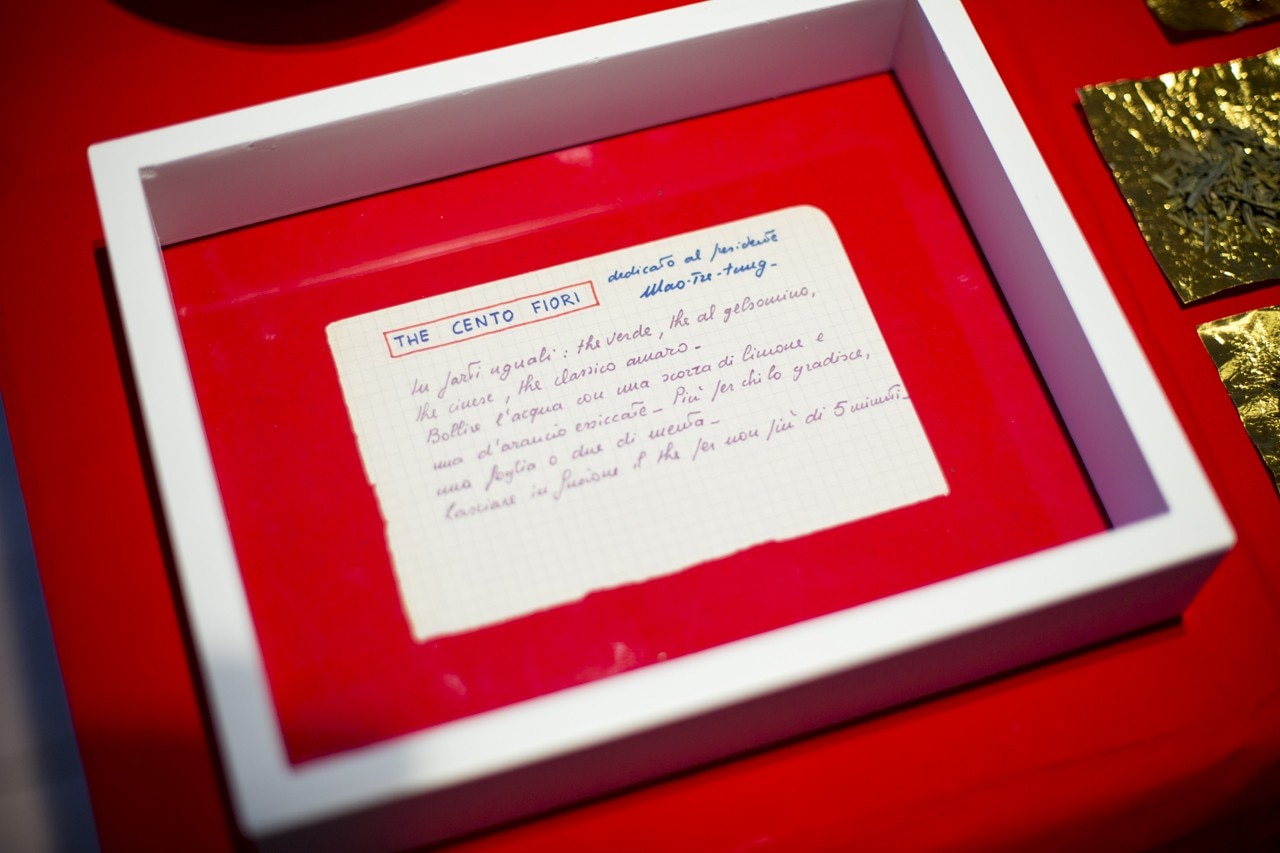 THE CENTO FIORI
dedicato al presidente
Mao-Tze-tung-
In parti uguali: the verde, the al gelsomino,
the cinese, the classico amaro-
Bollire l'acqua con una scorza di limone e
una d'arancio essiccate- Più per chi lo gradisce,
una foglia o due di menta-
Lasciare in fusione il the per non più di 5 minuti-